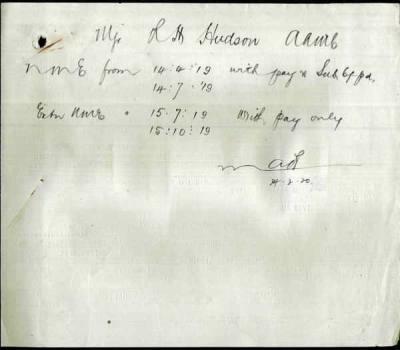 Mjr L H Hudson AAMC
NME from 14:4:19 with pay & Sub
14:7:19
Extn NME " 15.7:19 With pay only
15:10:19